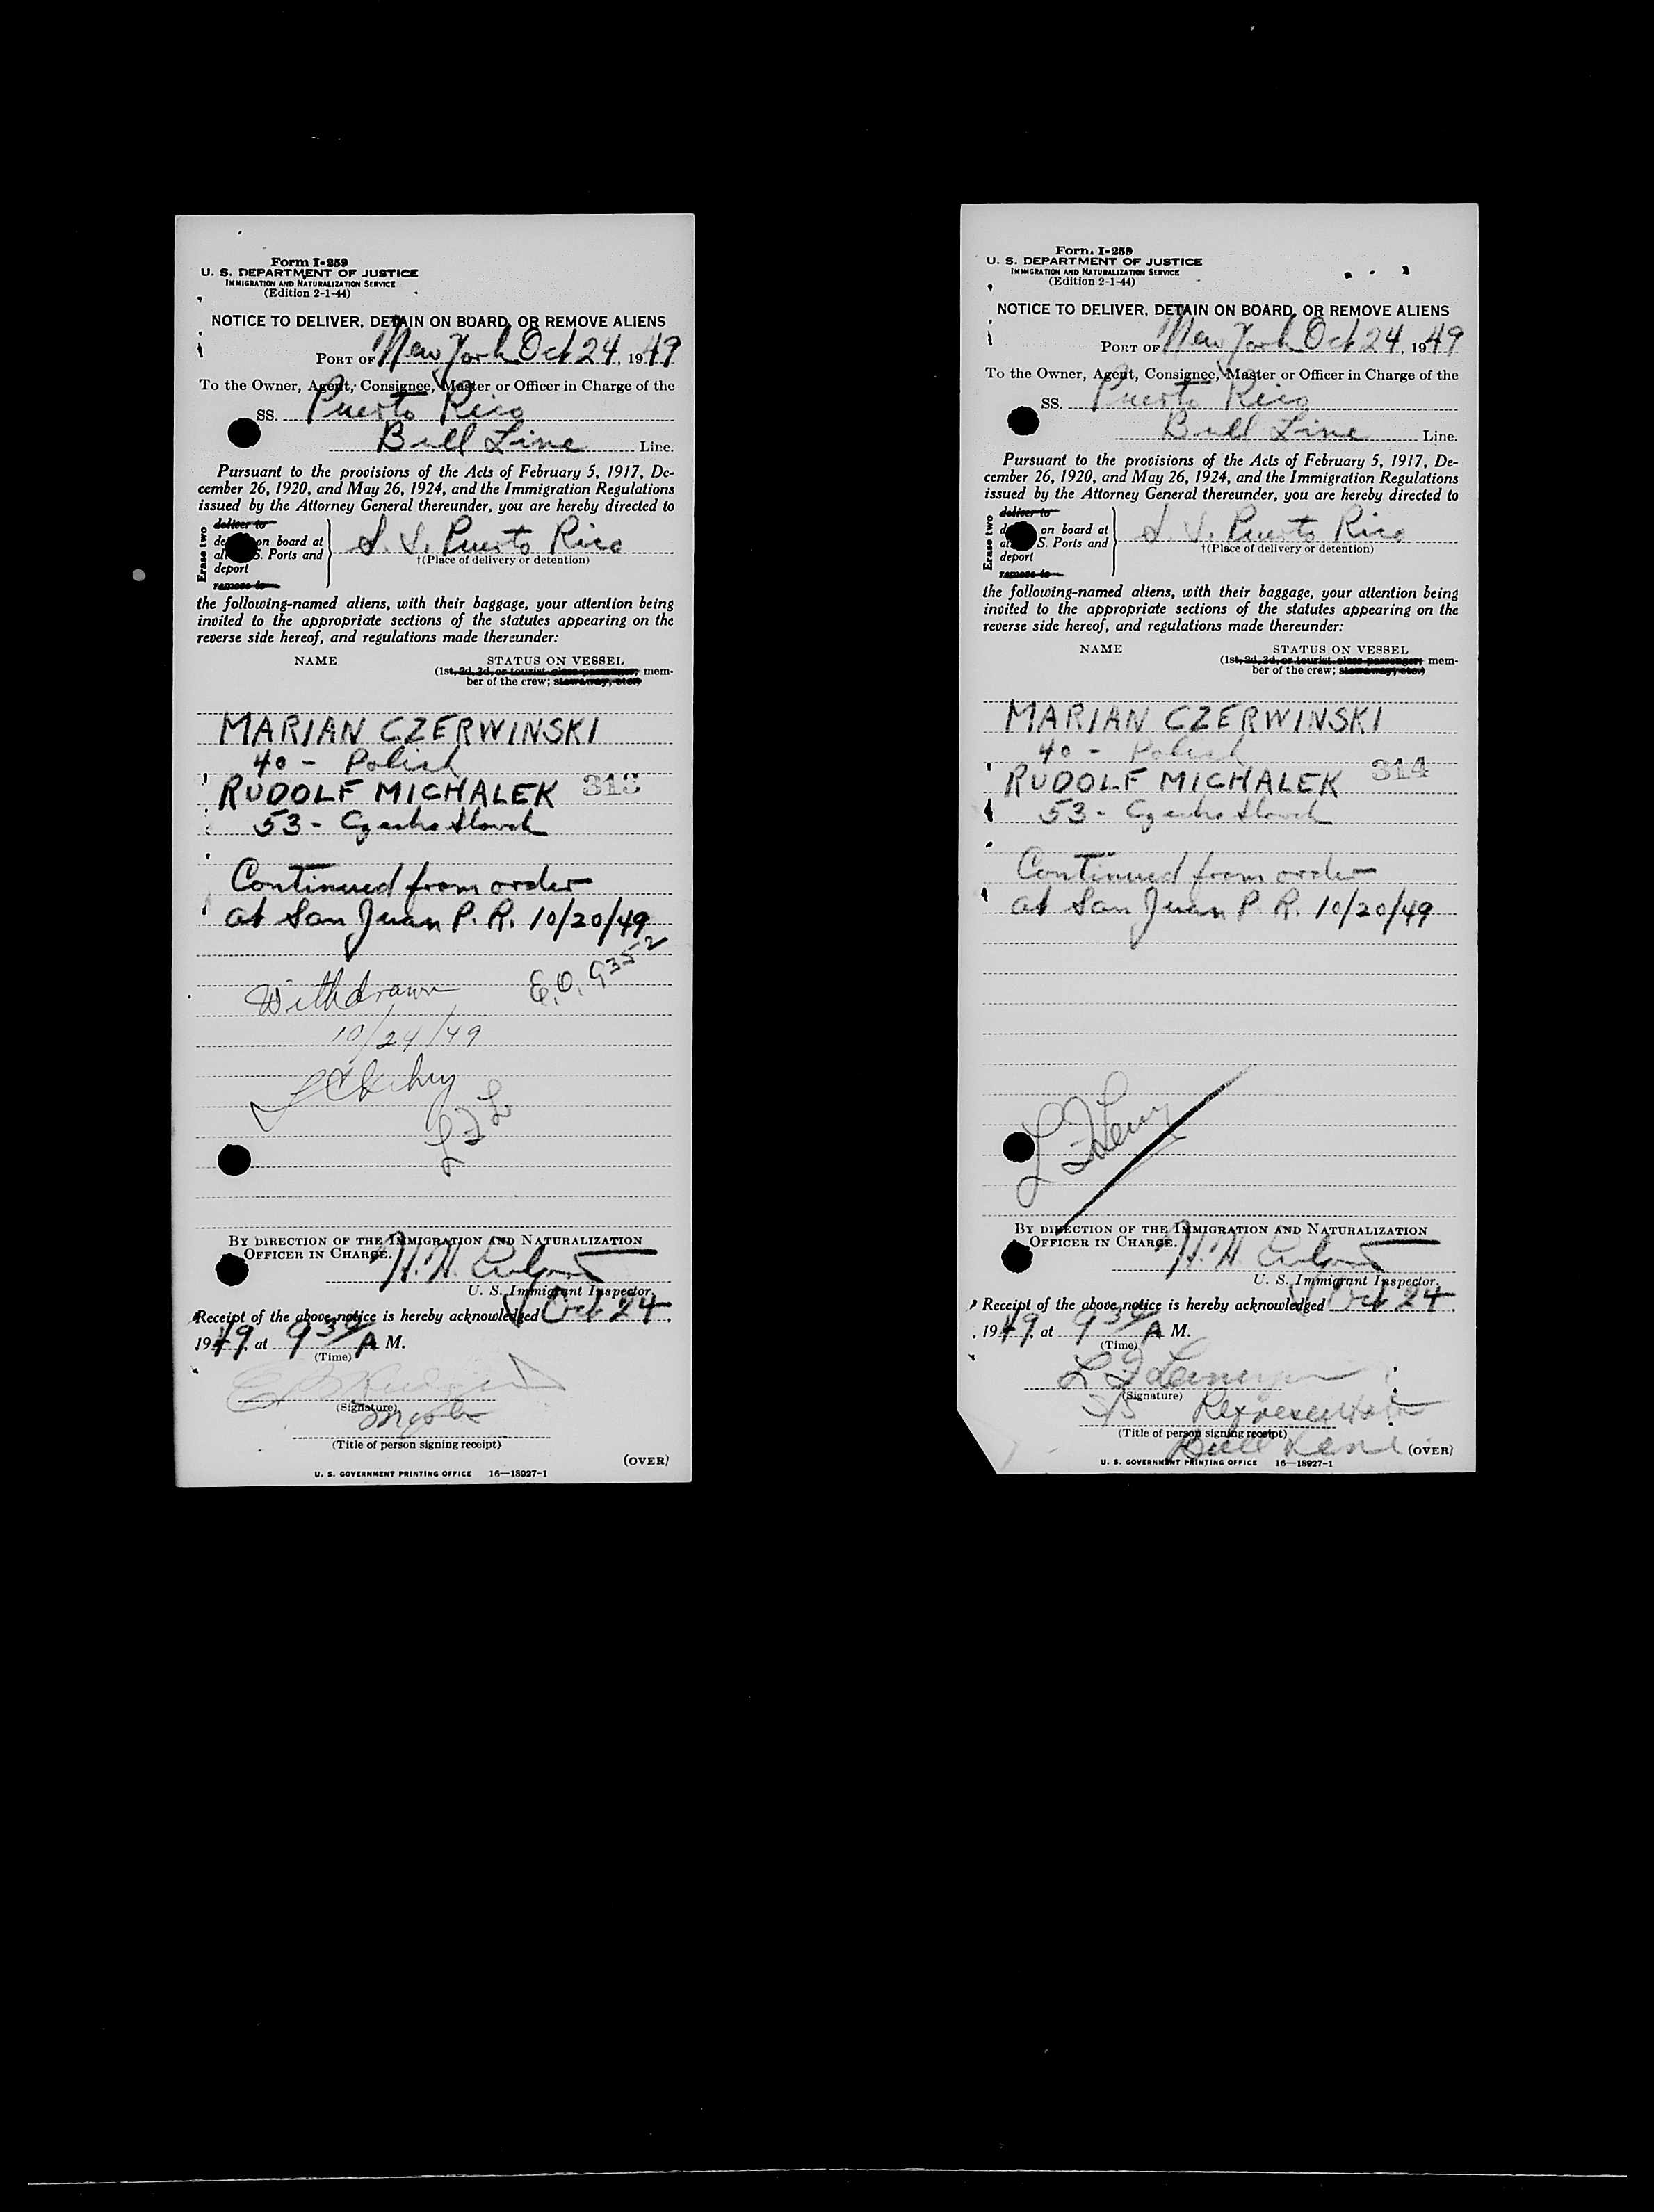 Form I-259
U. S. DEPARTMENT OF JUSTICE
IMMIGRATION AND NATURALIZATION SERVICE
(Edition 2-1-44)
NOTICE TO DELIVER, DETAIN ON BOARD, OR REMOVE ALIENS
PORT OF New York Oct 24, 1949
To the Owner, Agent, Consignee, Master or Officer in Charge of the
SS. Puerto Rico
Bull Line Line.
Pursuant to the provisions of the Acts of February 5, 1917, De-
cember 26, 1920, and May 26, 1924, and the Immigration Regulations
issued by the Attorney General thereunder, you are hereby directed to
Erase two
deliver to
on board at
S. Ports and
deport
remove to
S. S. Puerto Rico
†(Place of delivery or detention)
the following-named aliens, with their baggage, your attention being
invited to the appropriate sections of the statutes appearing on the
reverse side hereof, and regulations made thereunder:
NAME STATUS ON VESSEL
(1st, 2d, 3d, or tourist class passenger; mem-
ber of the crew; stowaway, etc.)
MARIAN CZERWINSKI
40 - Polish
RUDOLF MICHALEK
53 - Czecho Slovak
Continued from order
at San Juan P. R. 10/20/49
Withdrawn E.O. 9352
10/24/49
L F L
BY DIRECTION OF THE IMMIGRATION AND NATURALIZATION
OFFICER IN CHARGE.
U. S. Immigrant Inspector.
Receipt of the above notice is hereby acknowledged Oct 24,
1949, at 9 30 A M.
(Time)
(Signature)
Master
(Title of person signing receipt)
(OVER)
U. S. GOVERNMENT PRINTING OFFICE 16—18927-1
Form I-259
U. S. DEPARTMENT OF JUSTICE
IMMIGRATION AND NATURALIZATION SERVICE
(Edition 2-1-44)
NOTICE TO DELIVER, DETAIN ON BOARD, OR REMOVE ALIENS
PORT OF New York Oct 24, 1949
To the Owner, Agent, Consignee, Master or Officer in Charge of the
SS. Puerto Rico
Bull Line Line.
Pursuant to the provisions of the Acts of February 5, 1917, De-
cember 26, 1920, and May 26, 1924, and the Immigration Regulations
issued by the Attorney General thereunder, you are hereby directed to
Erase two
deliver to
on board at
S. Ports and
deport
remove to
S. S. Puerto Rico
†(Place of delivery or detention)
the following-named aliens, with their baggage, your attention being
invited to the appropriate sections of the statutes appearing on the
reverse side hereof, and regulations made thereunder:
NAME STATUS ON VESSEL
(1st, 2d, 3d, or tourist class passenger; mem-
ber of the crew; stowaway, etc.)
MARIAN CZERWINSKI
40 - Polish
RUDOLF MICHALEK 314
53 - Czecho Slovak
Continued from order
at San Juan P. R. 10/20/49
BY DIRECTION OF THE IMMIGRATION AND NATURALIZATION
OFFICER IN CHARGE.
U. S. Immigrant Inspector.
Receipt of the above notice is hereby acknowledged Oct 24,
1949, at 9 30 A M.
(Time)
(Signature)
Representative
(Title of person signing receipt)
Bull Line (OVER)
U. S. GOVERNMENT PRINTING OFFICE 16—18927-1